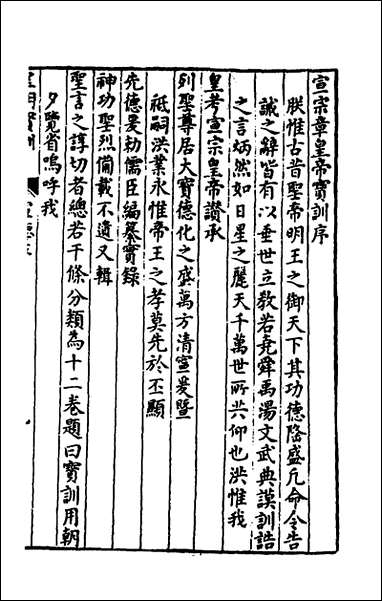 宣宗章皇帝寶訓序
朕惟古昔聖帝明王之御天下其功德隆盛凡命令告
誡之辭皆有以垂世立教若堯舜禹湯文武典謨訓誥
之言炳然如日星之麗天千萬世所共仰也洪惟我
皇考宣宗皇帝讚承
列聖尊居大寶德化之盛萬方清寧爰暨
祗嗣洪業永惟帝王之孝莫先於丕顯
先德爰勑儒臣編纂實錄
神功聖烈備載不遺又輯
聖言之諄切者總若干條分類為十二卷題曰寶訓用朝
夕覽省嗚呼我